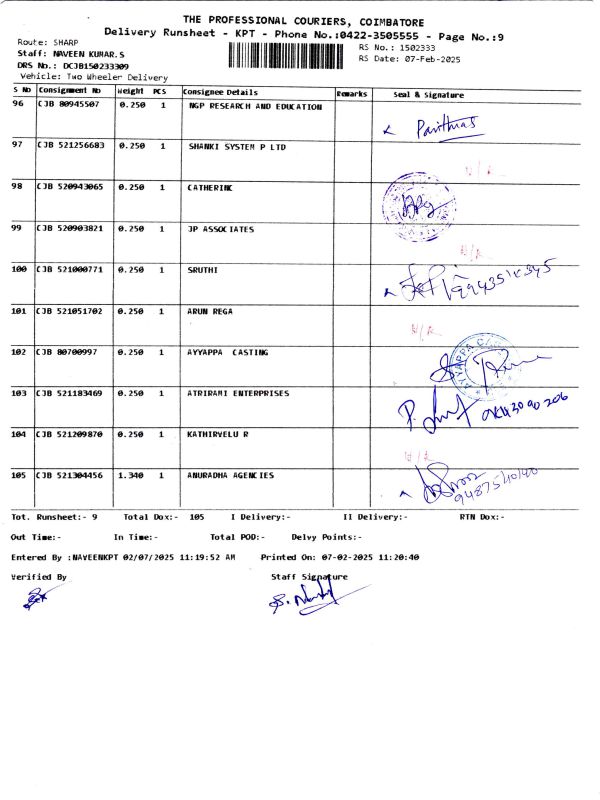 THE PROFESSIONAL COURIERS, COIMBATORE
Delivery Runsheet - KPT - Phone No.:0422-3505555 - Page No.:9
Route: SHARP
Staff: NAVEEN KUMAR.S
DRS No.: DCJB150233309
Vehicle: Two Wheeler Delivery
RS No.: 1502333
RS Date: 07-Feb-2025
S No Consignment No Weight PCS Consignee Details Remarks Seal & Signature
96 CJB 80945507 0.250 1 NGP RESEARCH AND EDUCATION
97 CJB 521256683 0.250 1 SHANKI SYSTEM P LTD
N/R
98 CJB 520943065 0.250 1 CATHERINE
99 CJB 520903821 0.250 1 JP ASSOCIATES
N/R
100 CJB 521000771 0.250 1 SRUTHI
101 CJB 521051702 0.250 1 ARUN REGA
N/R
102 CJB 80700997 0.250 1 AYYAPPA CASTING
AYYAPPA
103 CJB 521183469 0.250 1 ATRIRAMI ENTERPRISES
104 CJB 521209870 0.250 1 KATHIRVELU R
N/R
105 CJB 521304456 1.340 1 ANURADHA AGENCIES
Tot. Runsheet:- 9 Total Dox:- 105 I Delivery:- II Delivery:- RTN Dox:-
Out Time:- In Time:- Total POD:- Delvy Points:-
Entered By :NAVEENKPT 02/07/2025 11:19:52 AM Printed On: 07-02-2025 11:20:40
Verified By Staff Signature